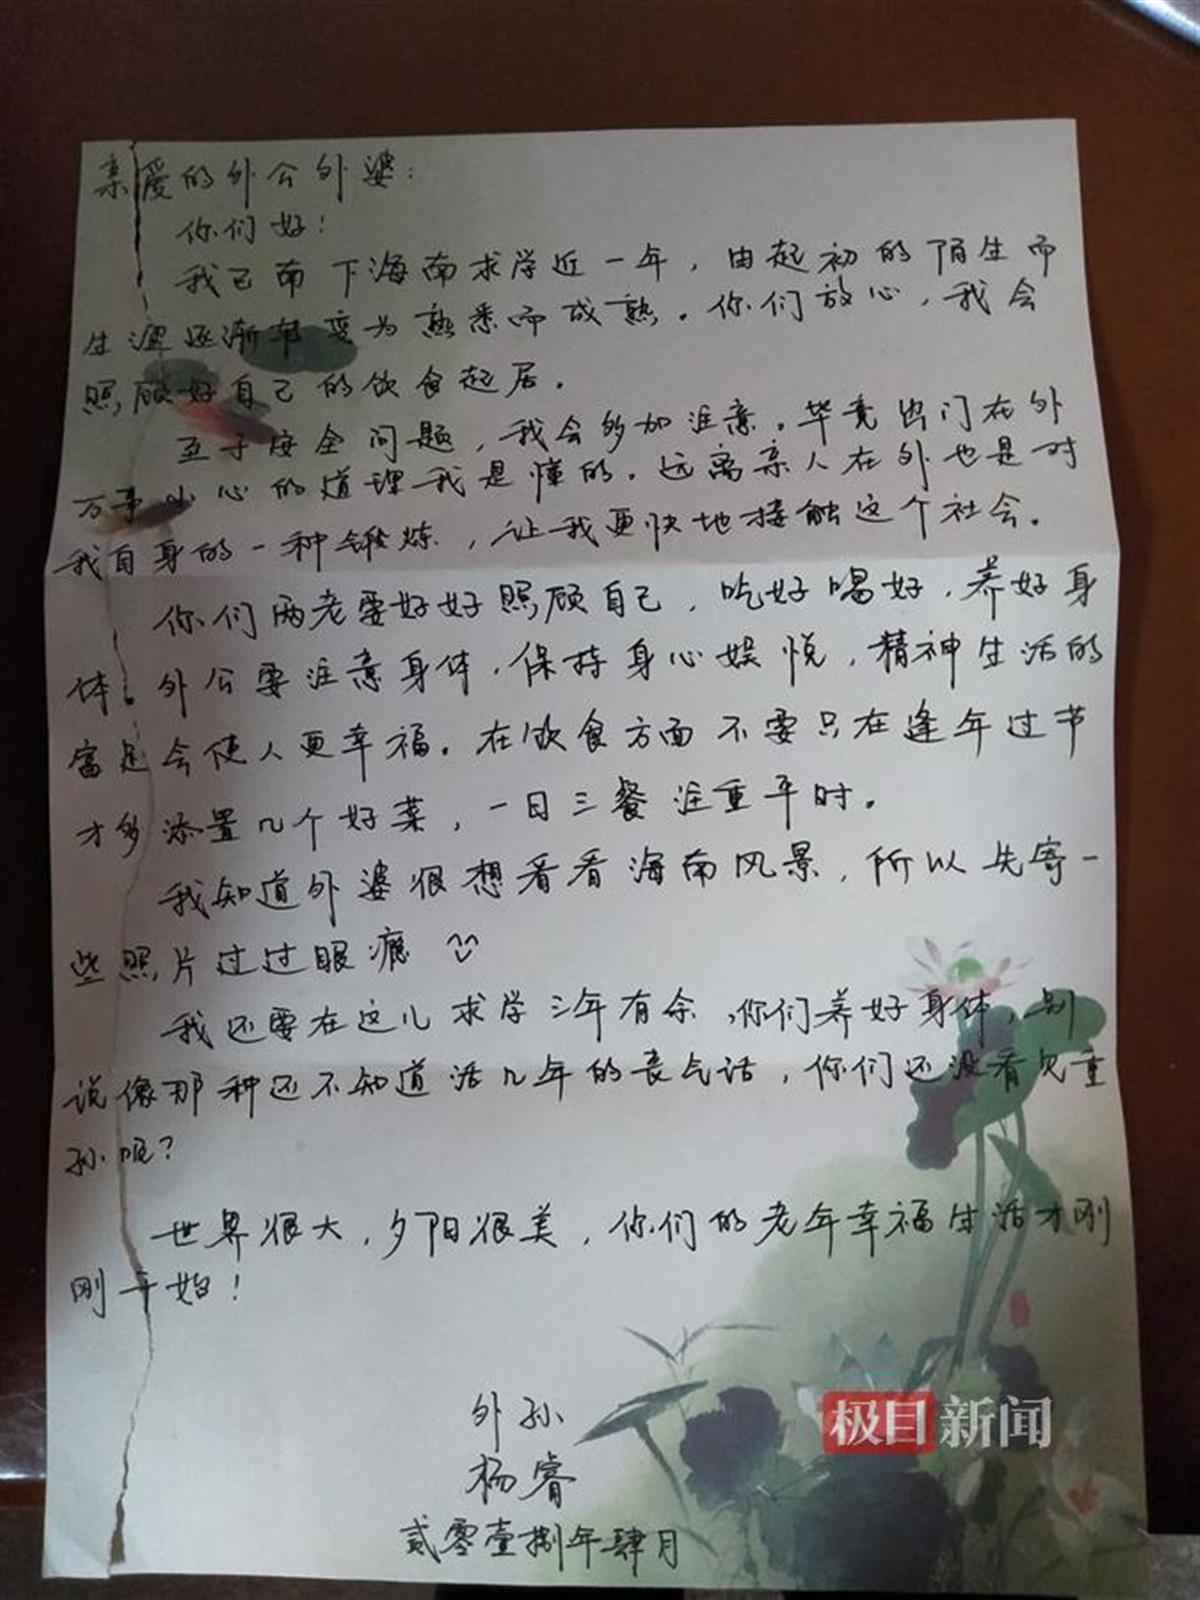 亲爱的外公外婆：
你们好！
我已南下海南求学近一年，由起初的陌生而
生涩逐渐转变为熟悉而成熟。你们放心，我会
照顾好自己的饮食起居。
至于安全问题，我会多加注意。毕竟出门在外
万事小心的道理我是懂的。远离亲人在外也是对
我自身的一种锻炼，让我更快地接触这个社会。
你们两老要好好照顾自己，吃好喝好，养好身
体。外公要注意身体，保持身心娱悦，精神生活的
富足会使人更幸福。在饮食方面不要只在逢年过节
才多添置几个好菜，一日三餐注重平时。
我知道外婆很想看看海南风景，所以先寄一
些照片过过眼瘾
我还要在这儿求学三年有余，你们养好身体，别
说像那种还不知道活几年的丧气话，你们还没看见重
孙呢？
世界很大，夕阳很美，你们的老年幸福生活才刚
刚开始！
外孙
杨睿
贰零壹捌年肆月
极目新闻